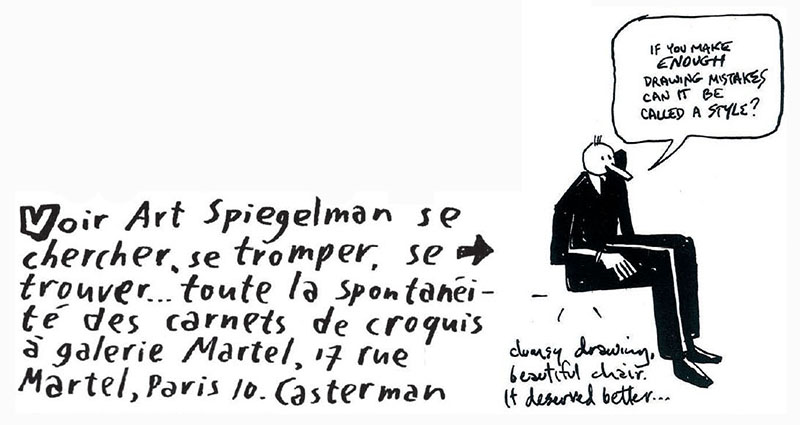 Voir Art Spiegelman se
chercher, se tromper, se ➔
trouver... toute la spontanéi-
té des carnets de croquis
à galerie Martel, 17 rue
Martel, Paris 10. Casterman
IF YOU MAKE
ENOUGH
DRAWING MISTAKES
CAN IT BE
CALLED A STYLE?
clumsy drawing,
beautiful chair.
It deserved better...